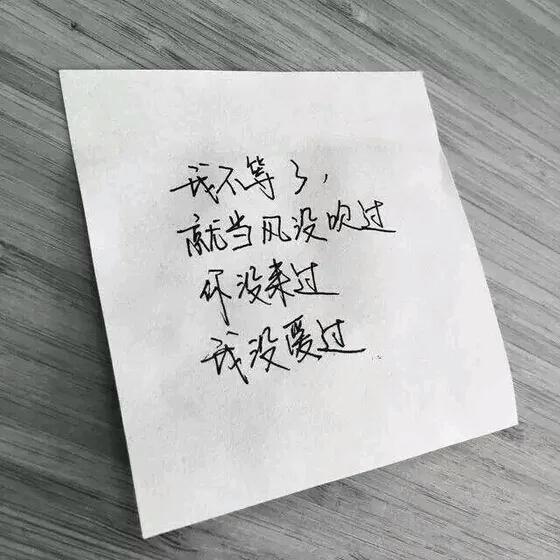 我不等了，
就当风没吹过
你没来过
我没爱过